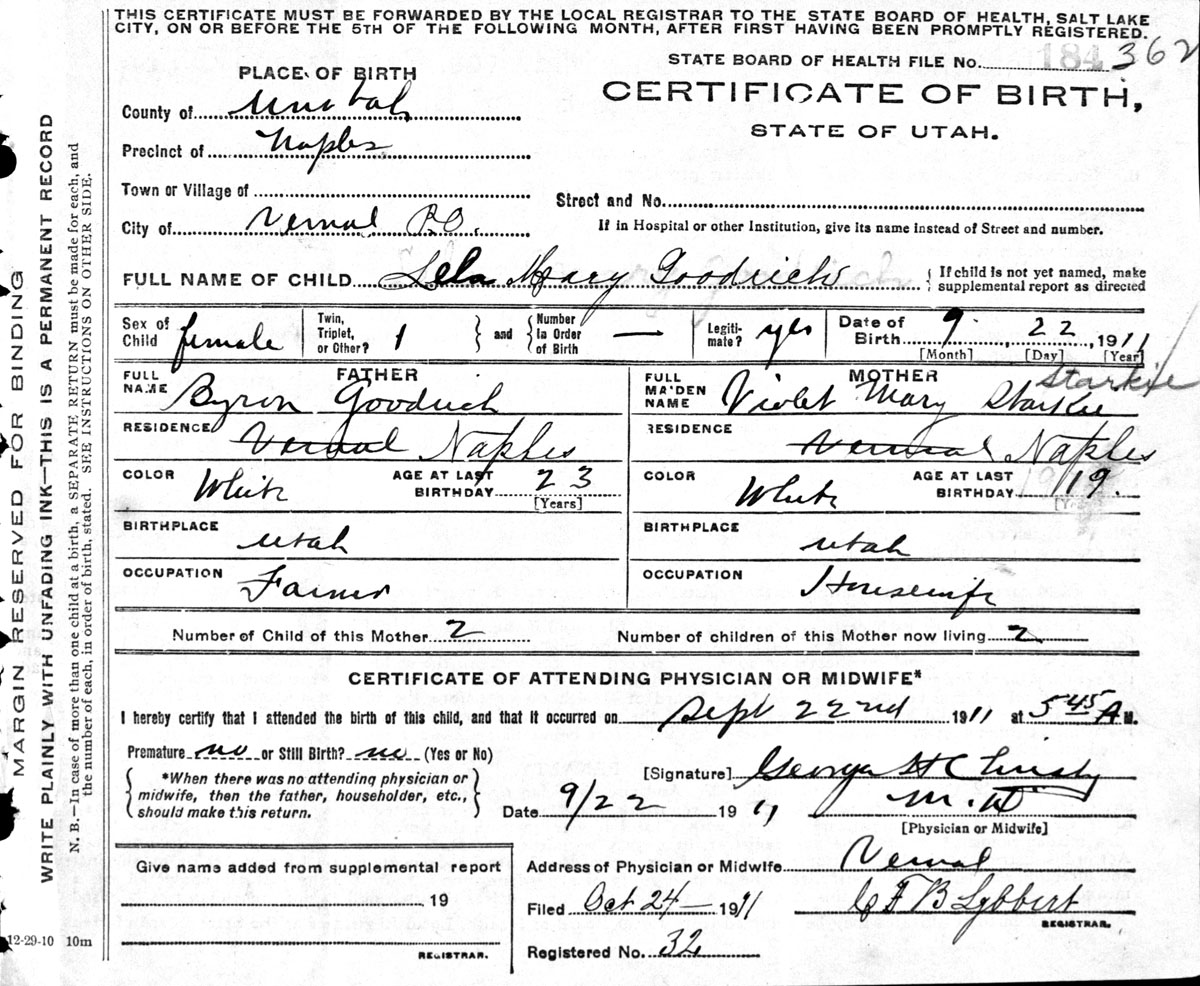 THIS CERTIFICATE MUST BE FORWARDED BY THE LOCAL REGISTRAR TO THE STATE BOARD OF HEALTH, SALT LAKE
CITY, ON OR BEFORE THE 5TH OF THE FOLLOWING MONTH, AFTER FIRST HAVING BEEN PROMPTLY REGISTERED.
STATE BOARD OF HEALTH FILE No. 184 362
PLACE OF BIRTH
CERTIFICATE OF BIRTH,
STATE OF UTAH.
County of
Precinct of Naples
Town or Village of
Street and No.
City of Vernal P.O.
If in Hospital or other Institution, give its name instead of Street and number.
FULL NAME OF CHILD Lela Mary Goodrich
If child is not yet named, make supplemental report as directed
Sex of Child female
Twin, Triplet, or Other? 1
and
Number in Order of Birth —
Legitimate? yes
Date of Birth 9, 22, 1911
[Month] [Day] [Year]
FATHER
FULL NAME Byron Goodrich
MOTHER
FULL MAIDEN NAME Violet Mary Starkie
Starkie
RESIDENCE Vernal Naples
RESIDENCE Vernal Naples
COLOR White
AGE AT LAST BIRTHDAY 23
[Years]
COLOR White
AGE AT LAST BIRTHDAY 19.
BIRTHPLACE utah
BIRTHPLACE utah
OCCUPATION Farmer
OCCUPATION Housewife
Number of Child of this Mother 2
Number of children of this Mother now living 2
CERTIFICATE OF ATTENDING PHYSICIAN OR MIDWIFE*
I hereby certify that I attended the birth of this child, and that it occurred on Sept 22nd 1911 at 5 45 A M.
Premature no or Still Birth? no (Yes or No)
*When there was no attending physician or
midwife, then the father, householder, etc.,
should make this return.
[Signature] George H Christy
M.D
[Physician or Midwife]
Date 9/22 1911
Give name added from supplemental report
19
REGISTRAR.
Address of Physician or Midwife Vernal
Filed Oct 24 1911
C F B Lybbert
REGISTRAR.
Registered No. 32
12-29-10 10m
MARGIN RESERVED FOR BINDING
WRITE PLAINLY WITH UNFADING INK—THIS IS A PERMANENT RECORD
N. B.—In case of more than one child at a birth, a SEPARATE RETURN must be made for each, and
the number of each, in order of birth, stated. SEE INSTRUCTIONS ON OTHER SIDE.